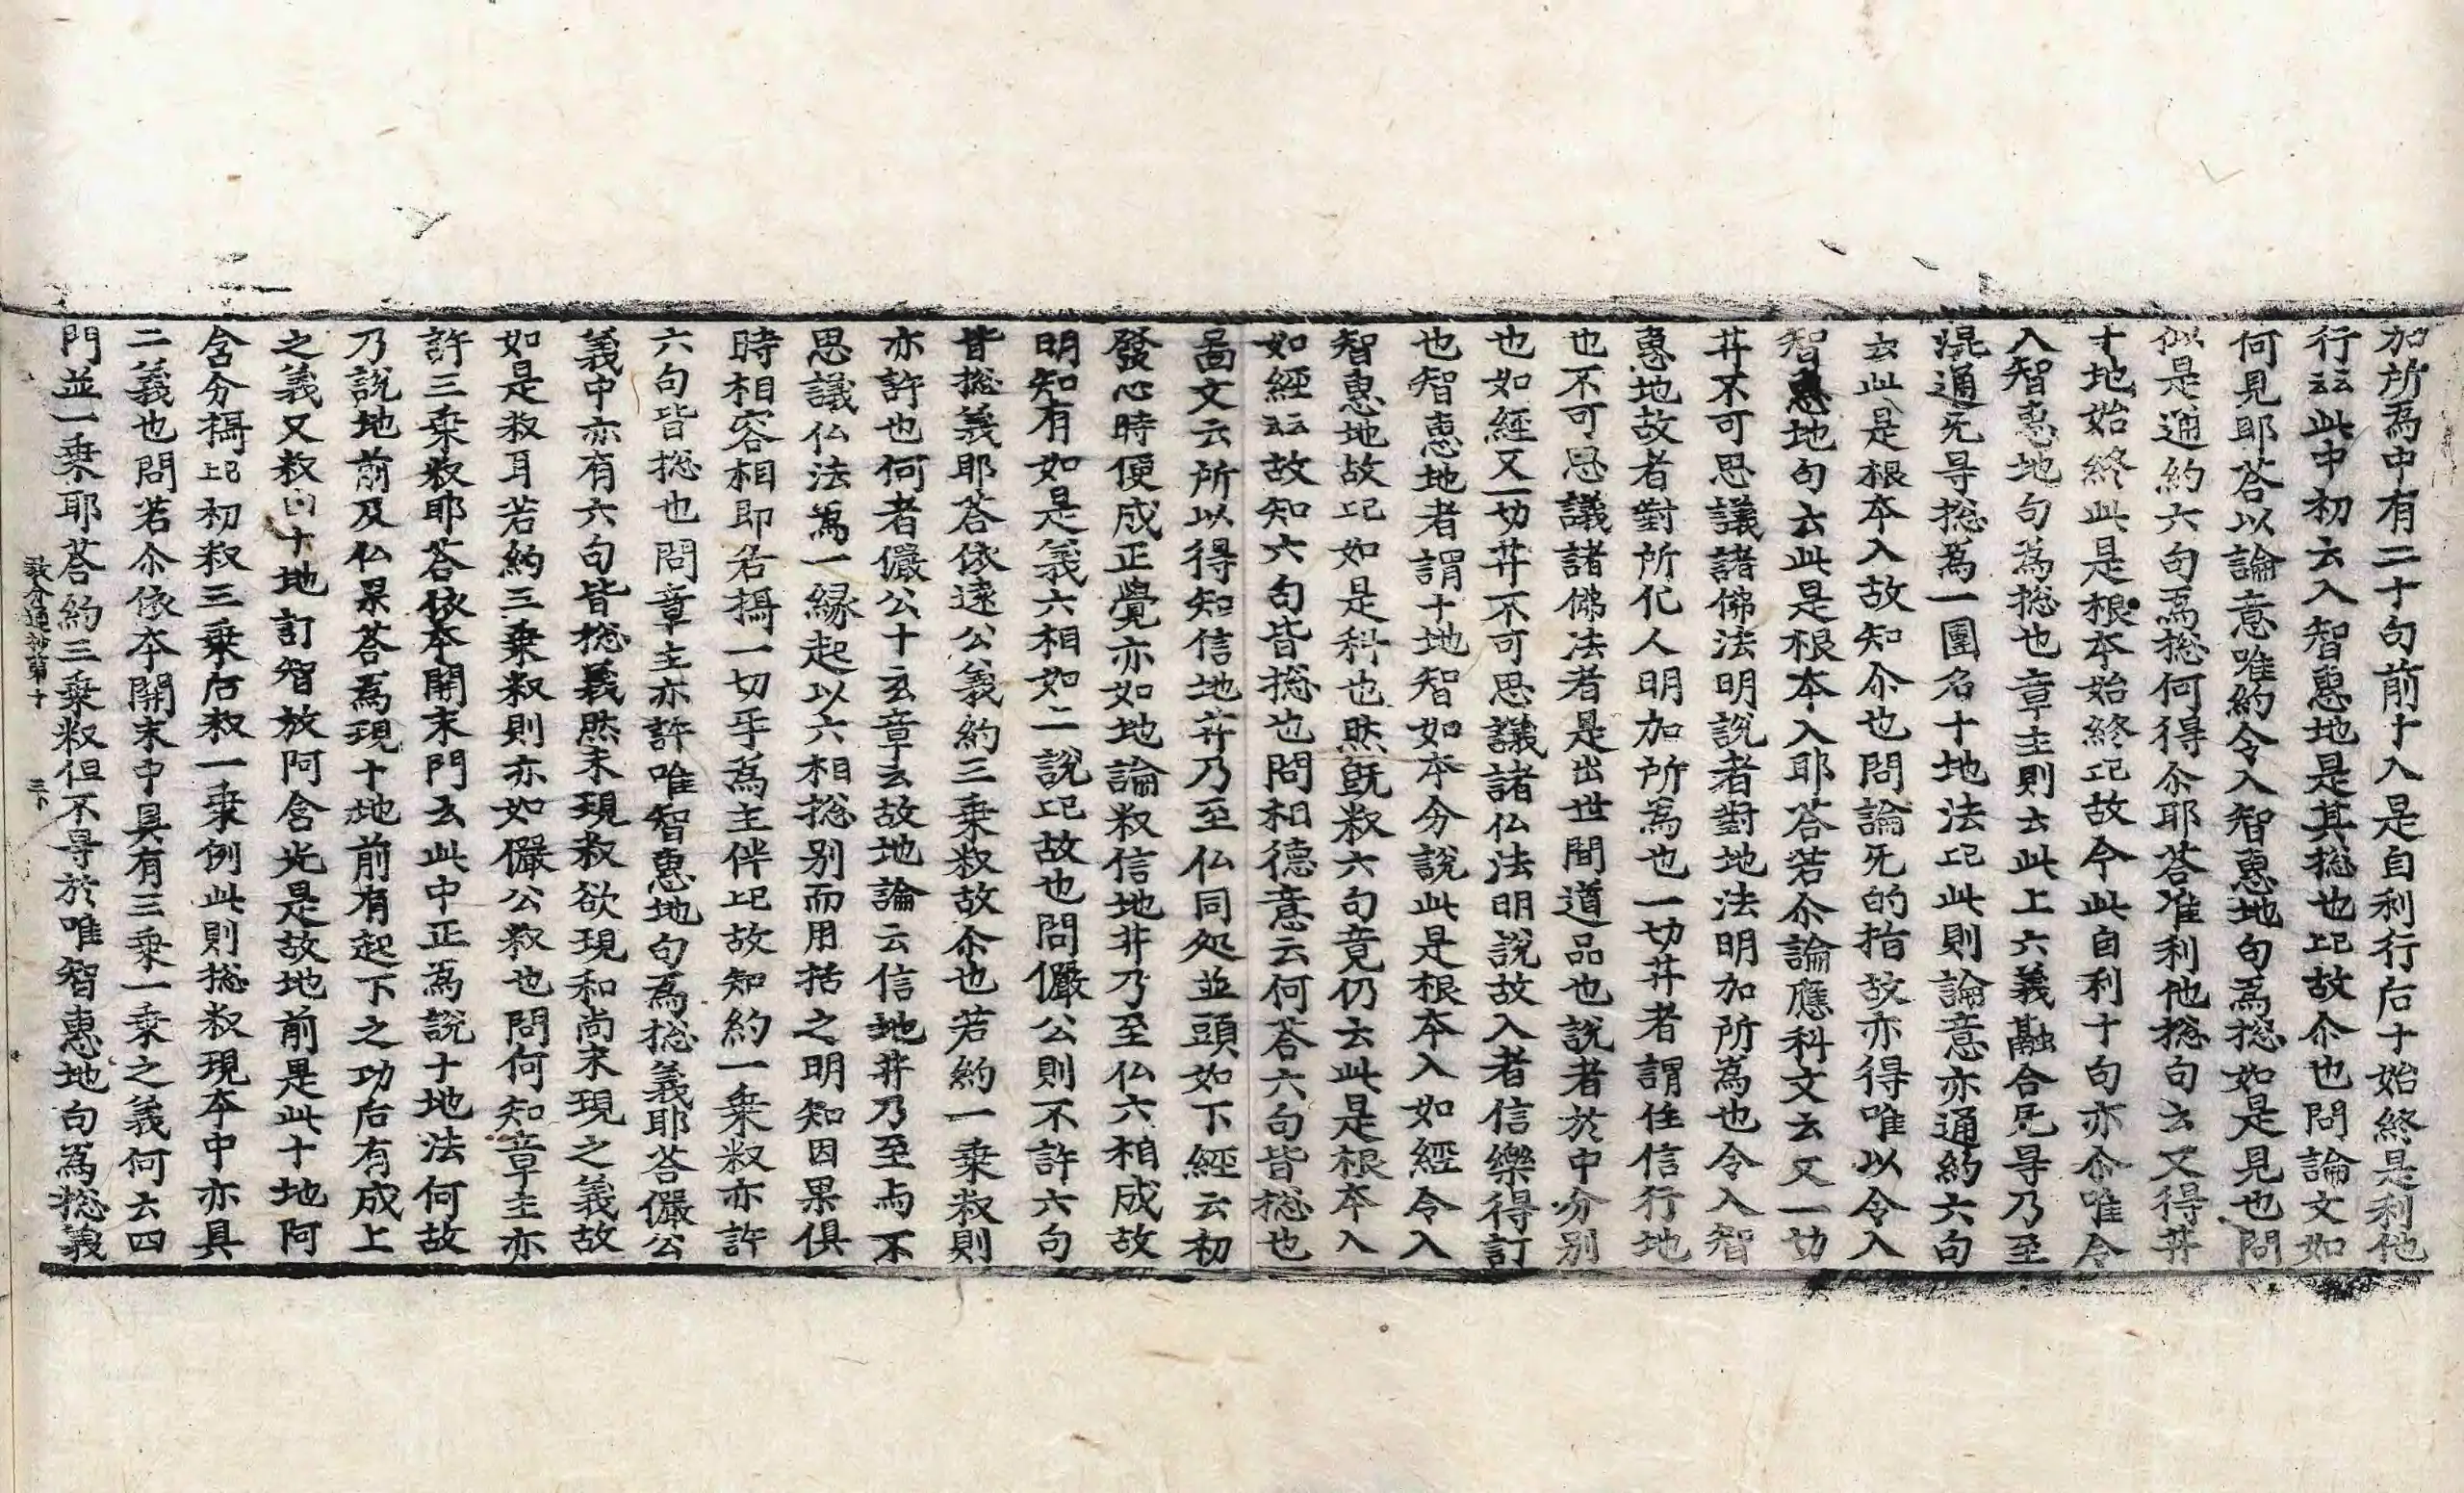 加所為中有二十句前十入是自利行后十始終是利他
行云云此中初云入智惠地是其捴也記故尒也問論文如
何見耶荅以論意唯約令入智惠地句為捴如是見也問
似是通約六句為捴何得尒耶荅准利他捴句云又得井
十地始終此是根本始終記故今此自利十句亦尒唯令
入智惠地句為捴也章主則云此上六義融合旡㝵乃至
混通旡㝵捴為一團名十地法記此則論意亦通約六句
云此是根本入故知尒也問論旡的指故亦得唯以令入
智惠地句云此是根本入耶荅若尒論應科文云又一切
井不可思議諸佛法明說者對地法明加所為也令入智
惠地故者對所化人明加所為也一切井者謂住信行地
也不可思議諸佛法者是出世間道品也說者於中分別
也如經又一切井不可思議諸仏法明說故入者信樂得訂
也智惠地者謂十地智如本分說此是根本入如經令入
智惠地故記如是科也然旣叙六句竟仍云此是根本入
如經云云故知六句皆捴也問相德意云何荅六句皆捴也
啚文云所以得知信地井乃至仏同処並頭如下經云初
發心時便成正覺亦如地論叙信地井乃至仏六相成故
明知有如是義六相如二說記故也問儼公則不許六句
皆捴義耶荅依遠公義約三乗叙故尒也若約一乗叙則
亦許也何者儼公十玄章云故地論云信地井乃至与不
思議仏法為一縁起以六相捴別而用括之明知因果俱
時相容相即若攝一切乎為主伴記故知約一乗叙亦許
六句皆捴也問章主亦許唯智惠地句為捴義耶荅儼公
義中亦有六句皆捴義然未現叙欲現和尚未現之義故
如是叙耳若約三乗叙則亦如儼公叙也問何知章主亦
許三乗叙耶荅依本開末門云此中正為說十地法何故
乃說地前及仏果荅為現十地前有起下之功后有成上
之義又叙曰十地訂智放阿含光是故地前是此十地阿
含分攝記初叙三乗后叙一乗例此則捴叙現本中亦具
二義也問若尒依本開末中具有三乗一乗之義何云四
門並一乗耶荅約三乗叙但不㝵於唯智惠地句為捴義
教分通抄第十 三下